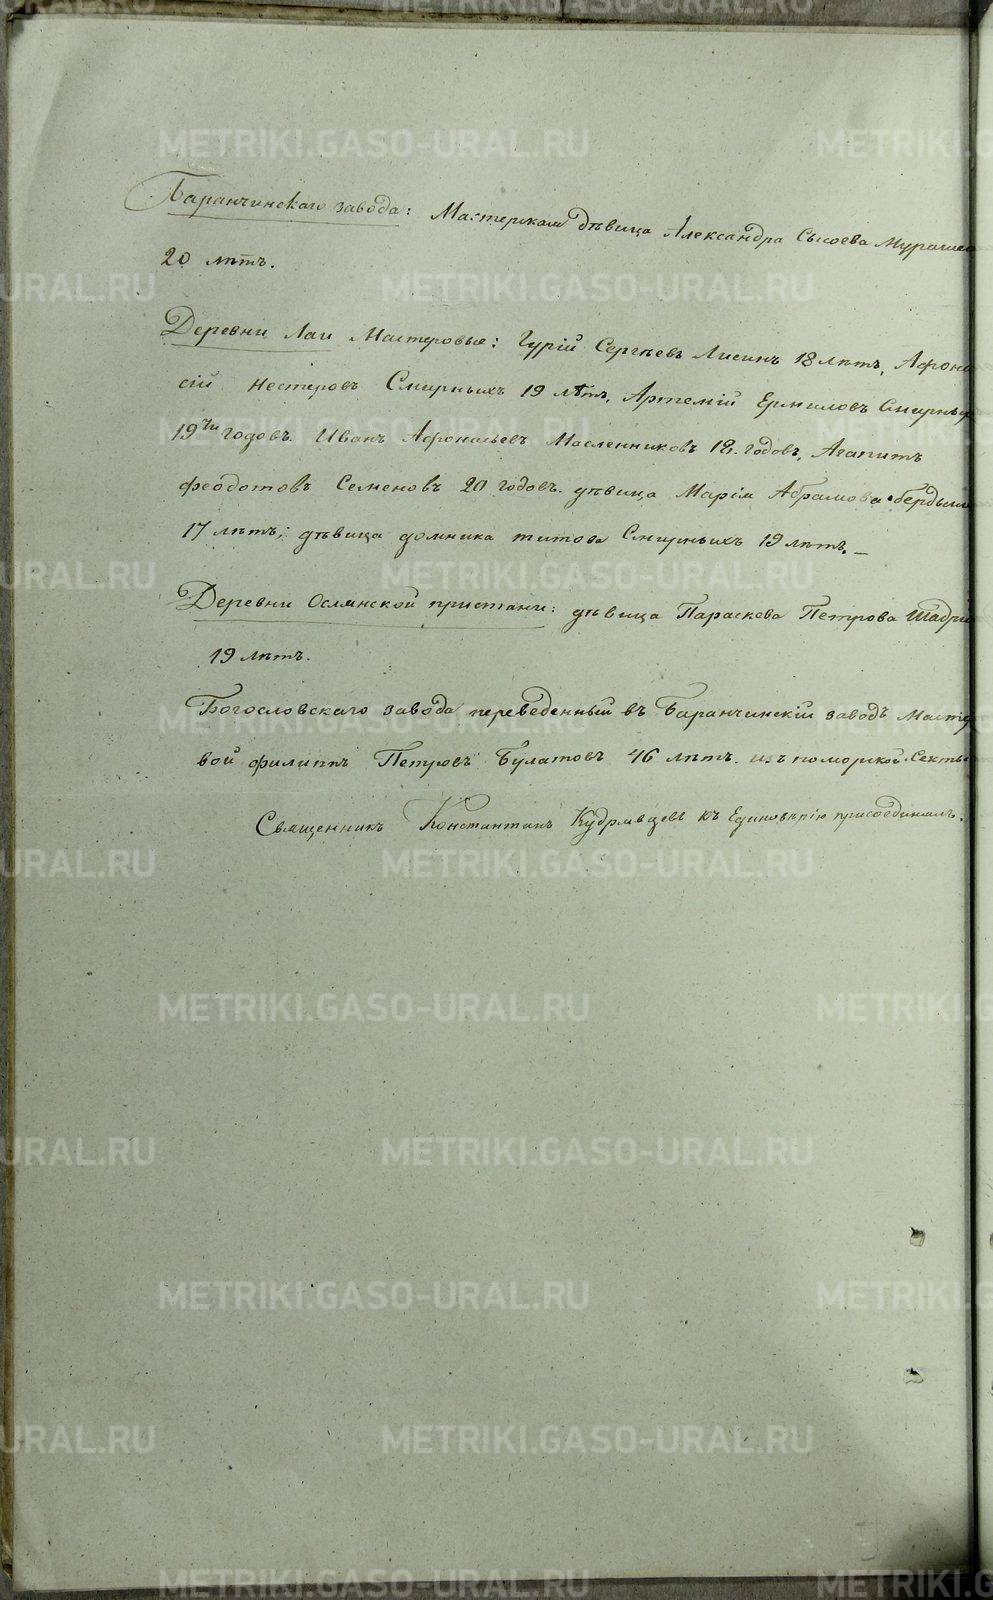 Баранчинскаго завода: Мастерская дѣвица Александра Сысоева Мурашев
20 лѣтъ.
Деревни Лаи Мастеровые: Гурій Сергѣевъ Лисинъ 18 лѣтъ, Афона
сій Нестеровъ Смирныхъ 19 лѣтъ, Артемій Ермиловъ Смирныхъ
19ти годовъ. Иванъ Афонасьевъ Масленниковъ 18. годовъ, Агапитъ
феодотовъ Семеновъ 20 годовъ. дѣвица Марія Абрамова Бердын
17 лѣтъ; дѣвица домника титова Смирныхъ 19 лѣтъ. —
Деревни Ослянской пристани: дѣвица Параскева Петрова Шадри
19 лѣтъ.
Богословскаго завода переведенный въ Баранчинскій заводъ Масте
вой филиппъ Петровъ Булатовъ 46 лѣтъ. изъ поморской Секты
Священникъ Константинъ Кудрявцевъ къ Единовѣрію присоединилъ.
METRIKI.GASO-URAL.RU